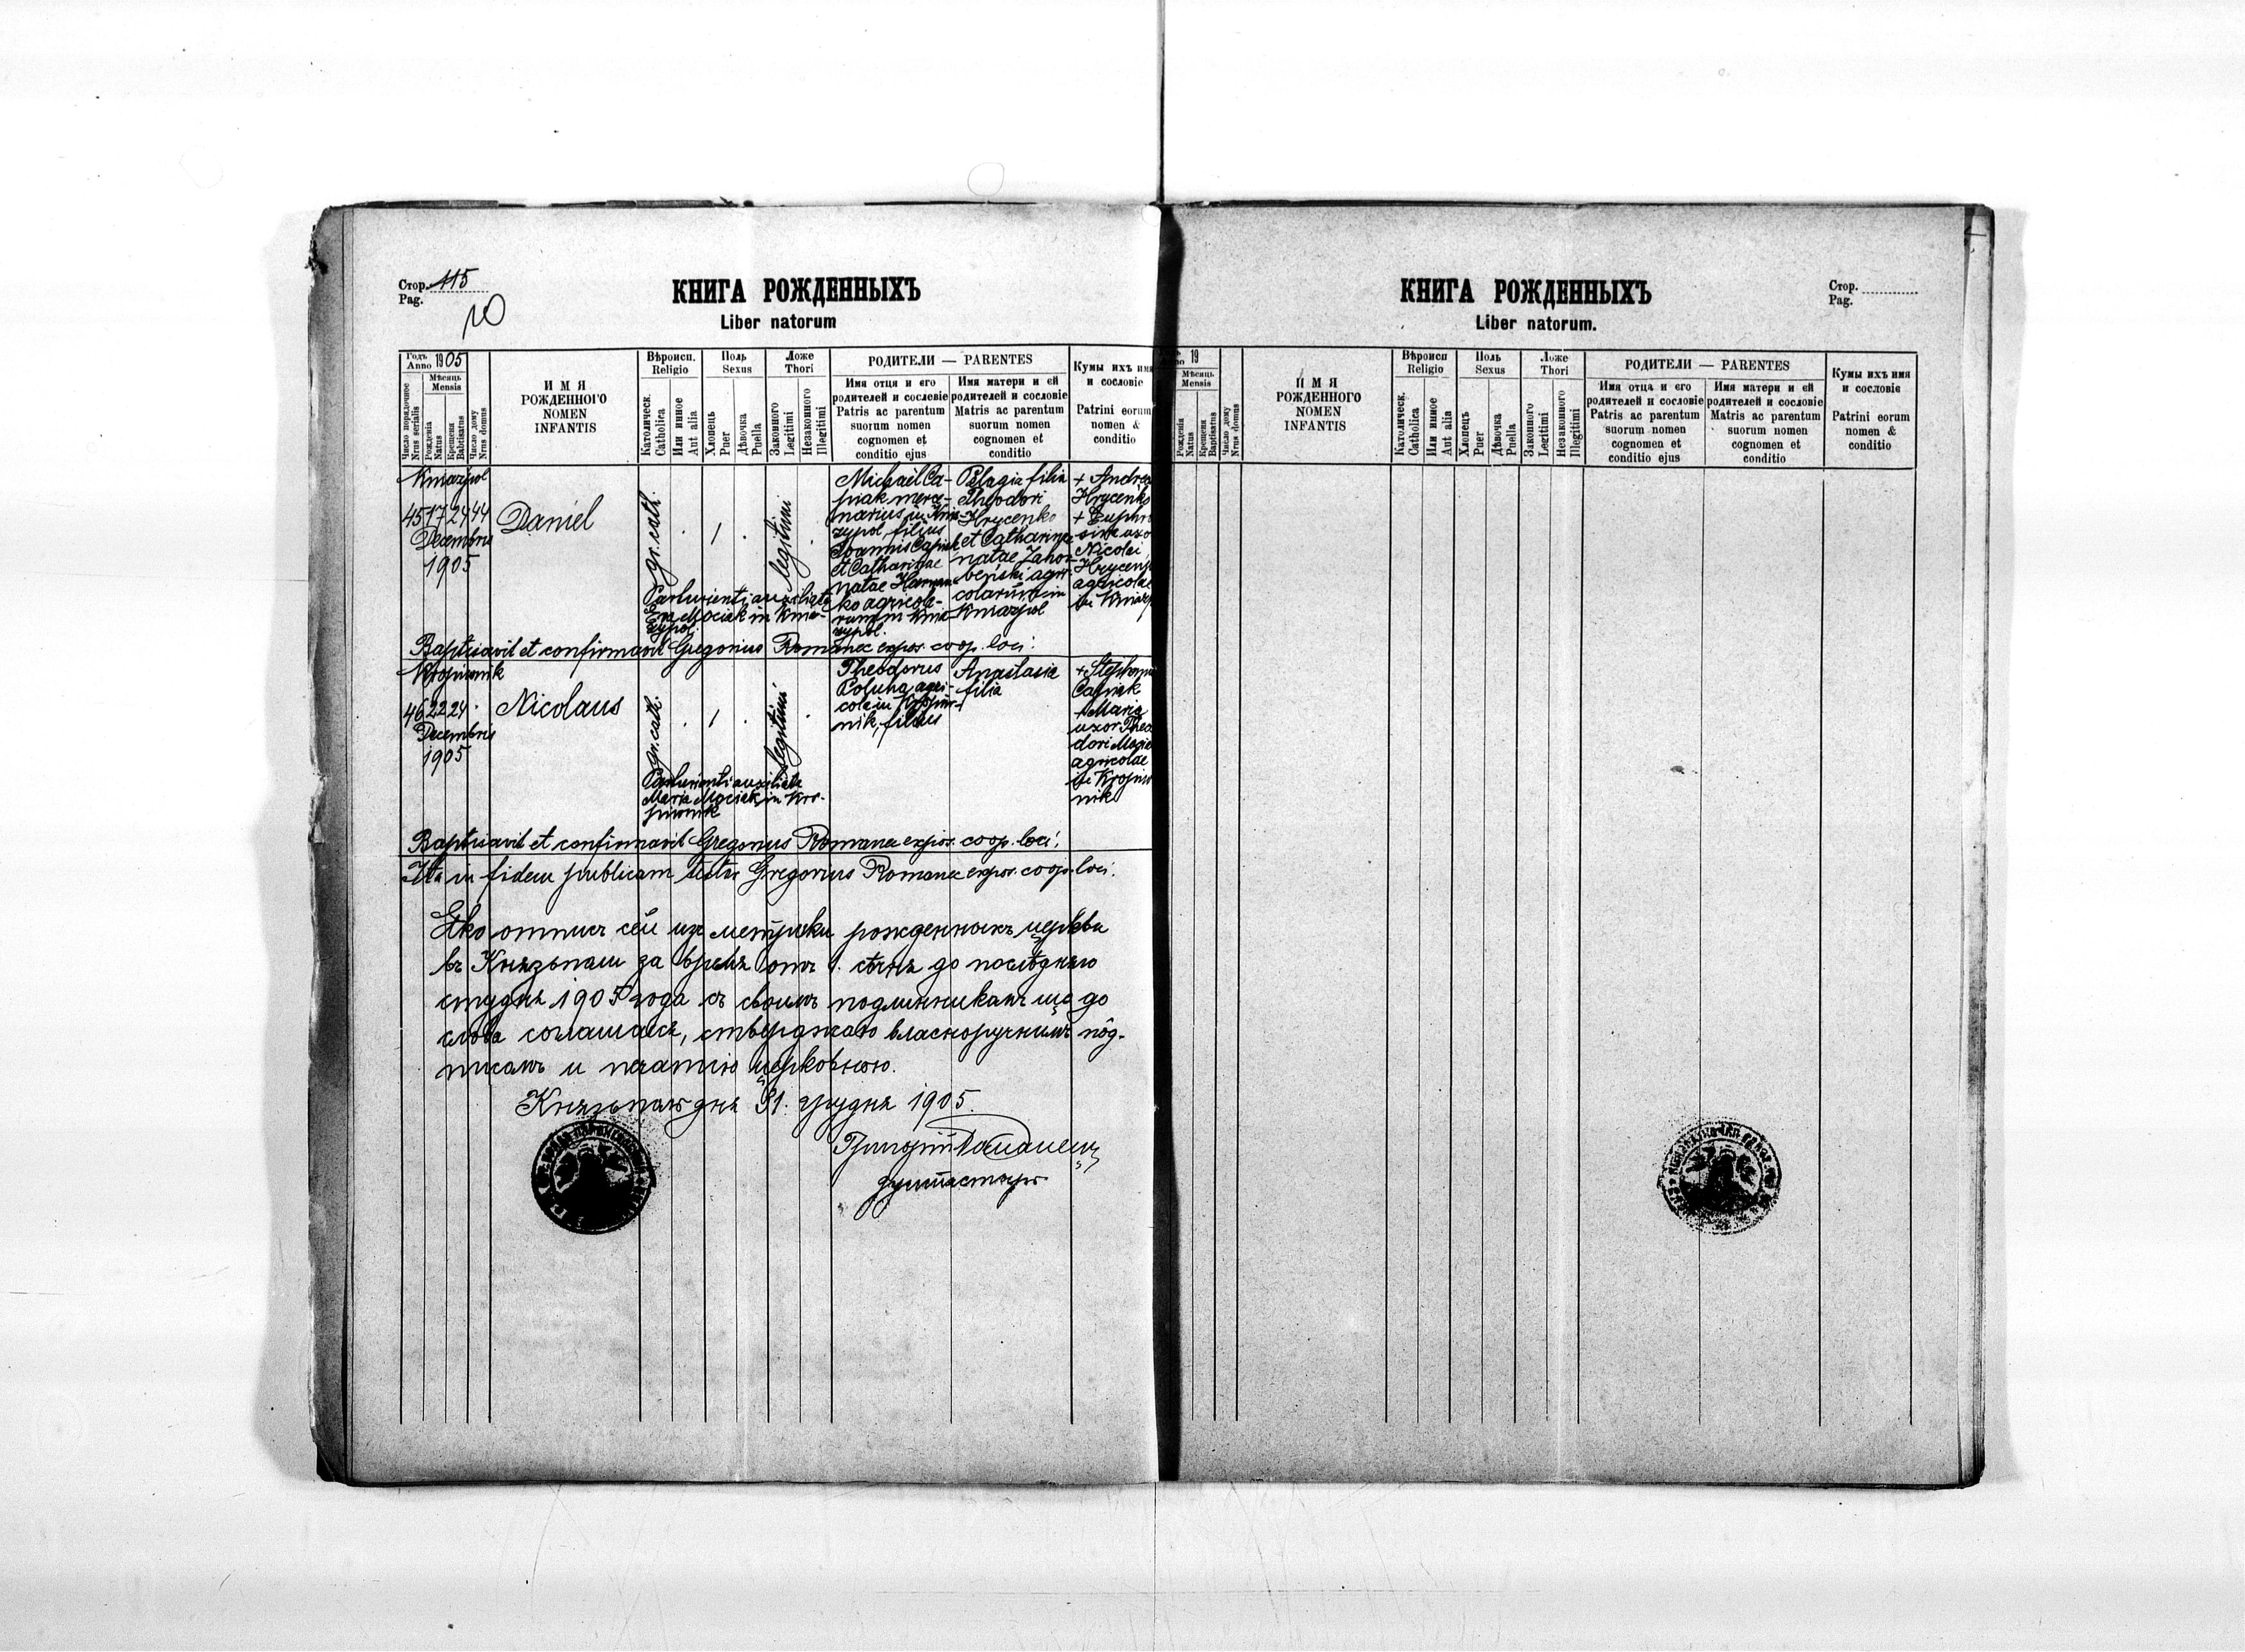 Стор. 115
Pag.
10
КНИГА РОЖДЕННЫХЪ
Liber natorum
Годъ 1905
Anno
Мѣсяць
Mensis
Число порядочное
Nrus serialis
Рожденія
Natus
Крещенія
Babtisatus
Число дому
Nrus domus
ИМЯ
РОЖДЕННОГО
NOMEN
INFANTIS
Вѣроисп.
Religio
Католическ.
Catholica
Или инное
Aut alia
Поль
Sexus
Хлопець
Puer
Дѣвочка
Puella
Ложе
Thori
Законного
Legitimi
Незаконного
Illegitimi
РОДИТЕЛИ — PARENTES
Имя отця и его
родителей и сословіе
Patris ac parentum
suorum nomen
cognomen et
conditio ejus
Имя матери и ей
родителей и сословіе
Matris ac parentum
suorum nomen
cognomen et
conditio
Кумы ихъ имя
и сословіе
Patrini eorum
nomen &
conditio
Kniazpol
45 17 24 44
Decembris
1905
Daniel
gr. cath.
1
legitimi
Michaël Ca-
piak merce-
narius in Knia-
zypol filius
Joannis Capiak
et Catharinae
natae
ko agricola-
rum in Knia-
zypol.
Pelagia filia
Theodori
Hrycenko
et Catharinae
natae
agri-
colarum in
Kniazpol
+ Andrea
Hrycenko
+ Euphro
sina uxo
Nicolai
Hrycenk
agricolae
in Kniazp
Parturienti auxiliata
Eva Mociak in Knia-
zypol.
Baptisavit et confirmavit Gregorius Romanec expos. coop. loci.
Kropiwnik
46 22 24
Decembris
1905
Nicolaus
gr. cath.
1
legitimi
Theodorus
Poluha agri-
cola in Kropiw-
nik, filius
Anastasia
filia
+ Stephanu
Capiak
+ Maria
uxor Theo
dori
agricolae
in Kropiw
nik
Parturienti auxiliata
Maria Mociak in Kro-
piwnik
Baptisavit et confirmavit Gregorius Romanec expos. coop. loci.
Ita in fidem publicam testor Gregorius Romanec expos. coop. loci.
Яко отпись сей изъ метрики рожденныхъ церкви
въ Князьполи за время отъ 1. сѣчня до послѣдняго
студня 1905 года съ своимъ подлинникомъ що до
слова соглашаєся, стверджаю власноручнимъ пôд-
писомъ и печатію церковною.
Князьполь дня 31. грудня 1905.
Григорій Романец
душпастырь
КНИГА РОЖДЕННЫХЪ
Liber natorum.
Стор.
Pag.
19
Мѣсяць
Mensis
Рожденія
Natus
Крещенія
Baptisatus
Число дому
Nrus domus
ИМЯ
РОЖДЕННОГО
NOMEN
INFANTIS
Вѣроисп
Religio
Католическ.
Catholica
Или инное
Aut alia
Поль
Sexus
Хлопець
Puer
Дѣвочка
Puella
Ложе
Thori
Законного
Legitimi
Незаконного
Illegitimi
РОДИТЕЛИ — PARENTES
Имя отца и его
родителей и сословіе
Patris ac parentum
suorum nomen
cognomen et
conditio ejus
Имя матери и ей
родителей и сословіе
Matris ac parentum
suorum nomen
cognomen et
conditio
Кумы ихъ имя
и сословіе
Patrini eorum
nomen &
conditio